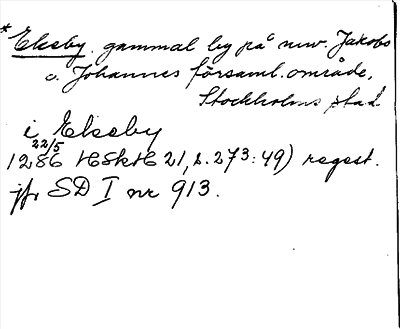 * Ekeby. gammal by på nuv. Jakobs
o. Johannes församl. område,
Stockholms stad
i Ekeby
1286 22/5 HSkH 21, s. 273: 49) regest.
jfr SD I nr 913.